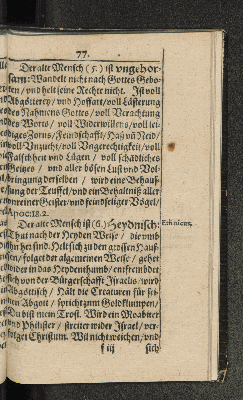 77.
Der alte Mensch (5.) ist ungehor-
sam: Wandelt nicht nach Gottes Gebo-
ten / und helt seine Rechte nicht. Ist voll
Abgötterey / und Hoffart / voll Lästerung
des Nahmens Gottes / voll Verachtung
des Worts / voll Widerwillens / voll lei-
digen Zorns / Feindschafft / Haß und Neid /
voll Unzucht / voll Ungerechtigkeit / voll
Falschheit und Lügen / voll schädliches
Geitzes / und aller bösen Lust und Vol-
bringung derselben / wird eine Behau-
sung der Teuffel / und ein Behältniß aller
unreiner Geister / und feindseliger Vögel /
Apoc. 18. 2.
Der alte Mensch ist (6.) Heydnisch:
Ethnicus.
That nach der Heyden Weise / die umb
ihn her sind. Helt sich zu den grossen Hauf-
fen / folget der algemeinen Weise / gehet
under in das Heydenthumb / entfrembdet
von der Bürgerschafft Israelis / wird
Abgöttisch / Hält die Creaturen für sei-
nen Abgott / spricht zum Goldklumpen /
Du bist mein Trost. Wird ein Moabiter
und Philister / streitet wider Israel / ver-
folget Christum. Wil nicht weichen / und
f iij
sich